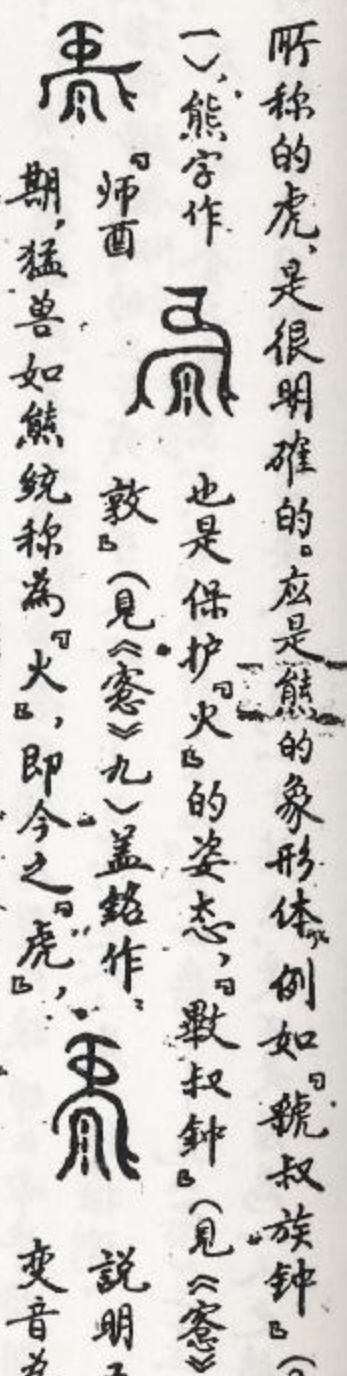 所称的虎、是很明確的。应是熊的象形体，例如『虢叔族钟』（
一）、熊字作 也是保护『火』的姿态，『 叔鈡』（見《愙》
『师酉 敦』（見《愙》九）盖銘作： 説明
期，猛兽如熊統称為『火』，即今之『虎』， 变音為